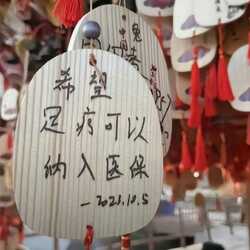 希望
足疗可以
纳入医保
-2021.10.5